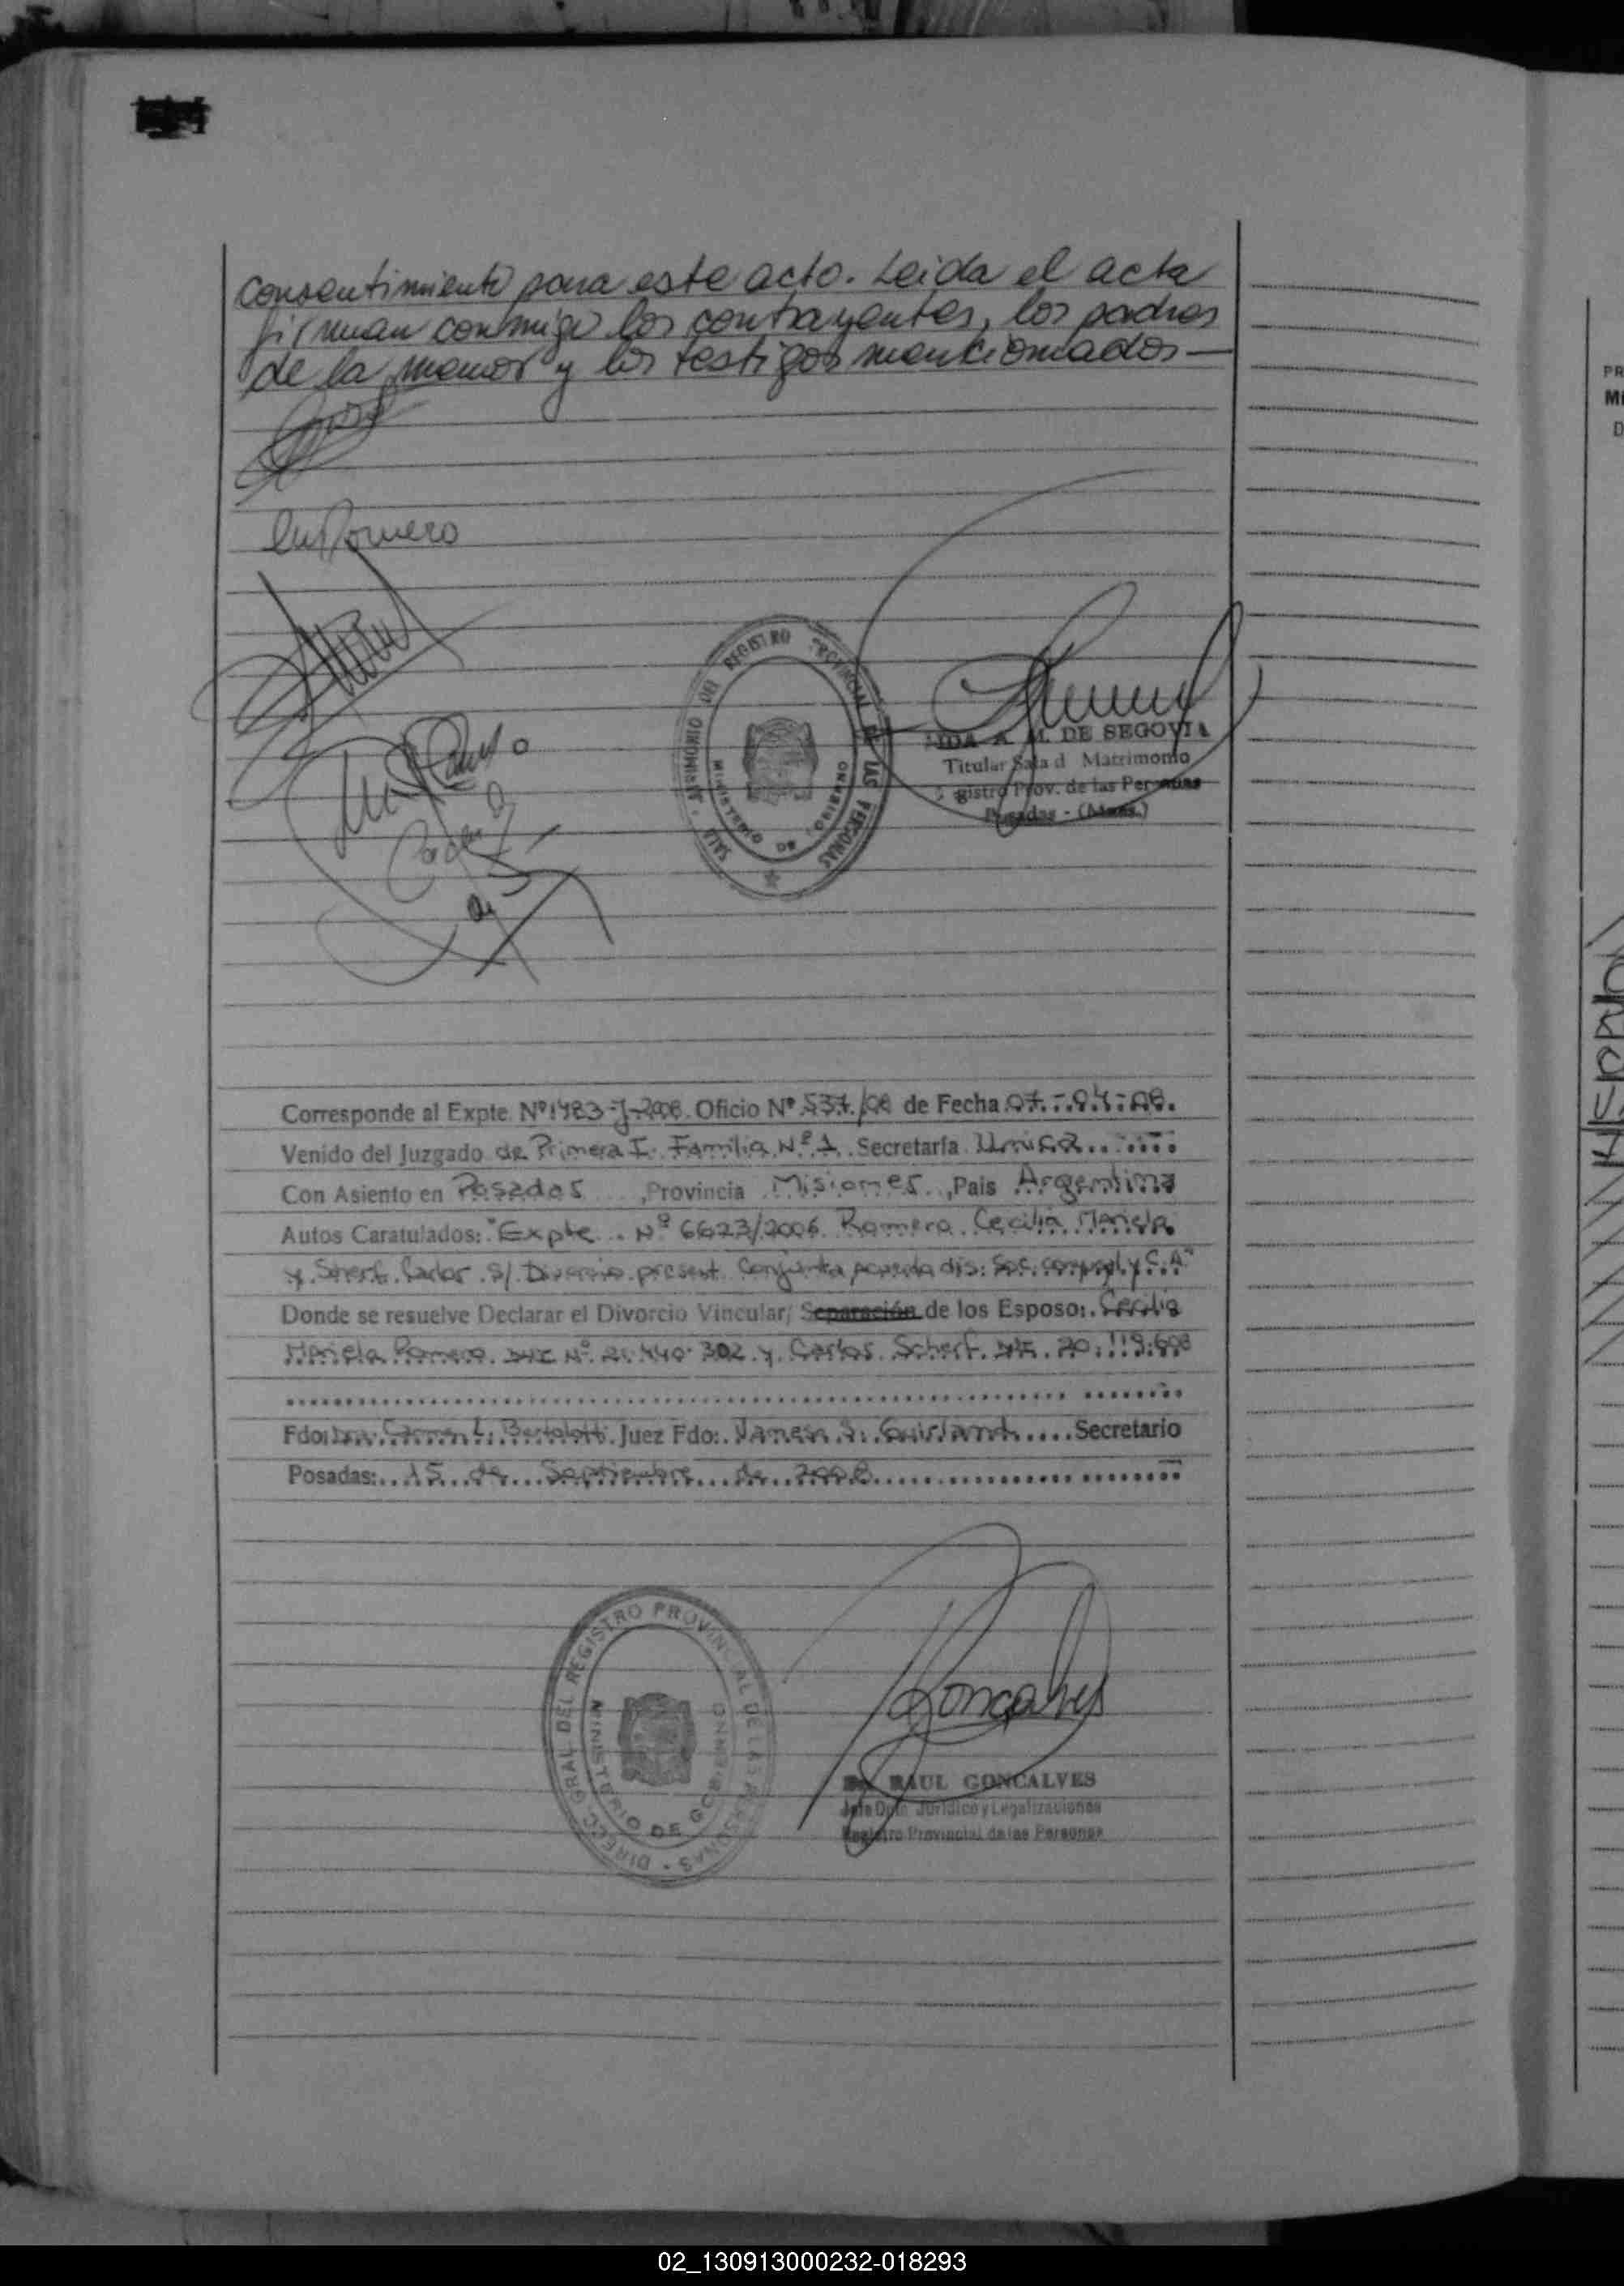 consentimiento para este acto. Leida el acta
firman conmigo los contrayentes, los padres
de la menor y los testigos mencionados—
Romero
SALA MATRIMONIO DEL REGISTRO PROVINCIAL DE LAS PERSONAS
MINISTERIO DE GOBIERNO
A. M. DE SEGOVIA
Titular Sala d Matrimonio
gistro Prov. de las Personas
Posadas - (Mnes.)
Corresponde al Expte. Nº 1483-J-2008. Oficio Nº 537/08 de Fecha 07-04-08.
Venido del Juzgado de Primera I. Familia Nº 1 Secretaría Unica
Con Asiento en Posadas, Provincia Misiones, País Argentina
Autos Caratulados: "Expte. Nº 6623/2006 Romero Cecilia Mariela
y Scherf Carlos s/ Divorcio present. Conjunta acuerda dis. Soc. conyugal y C.A"
Donde se resuelve Declarar el Divorcio Vincular, Separación de los Esposo: Cecilia
Mariela Romero DNI Nº 21.440.302 y Carlos Scherf DNI. 20.119.608
Fdo: Dra. Carmen L. Bertolotti Juez Fdo: Vanesa Secretario
Posadas: 15 de Septiembre de 2008
DIRECC GRAL DEL REGISTRO PROVINCIAL DE LAS PERSONAS
MINISTERIO DE GOBIERNO
Goncalves
RAUL GONCALVES
Jefe Dpto Jurídico y Legalizaciones
Registro Provincial de las Personas
PR
MI
D
02_130913000232-018293